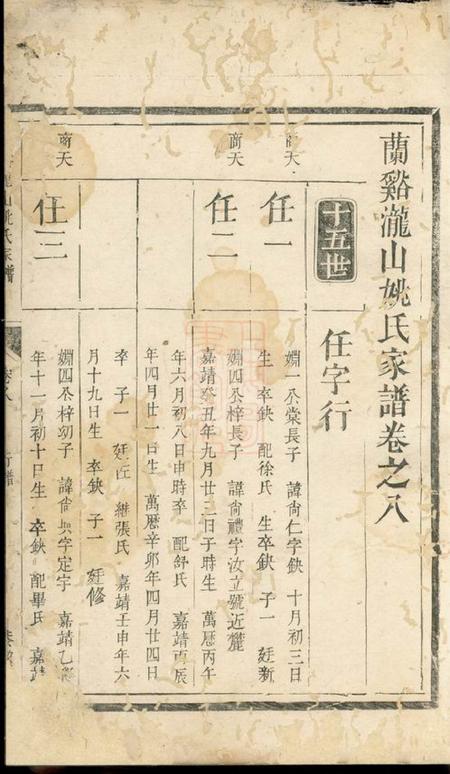 蘭谿瀧山姚氏家譜卷之八
十五世
任字行
商天
任一
嫺一公棠長子 諱尙仁字缺 十月初三日
生 卒缺 配徐氏 生卒缺 子一 廷新
商天
任二
嫺四公梓長子 諱尙禮字汝立號近麓
嘉靖癸丑年九月廿三日子時生 萬歷丙午
年六月初八日申時卒 配舒氏 嘉靖丙辰
年四月廿一日生 萬歷辛卯年四月廿四日
卒 子一 廷 繼張氏 嘉靖壬申年六
月十九日生 卒缺 子一 廷修
商天
任三
嫺四公梓幼子 諱尙 字定字 嘉靖乙
年十一月初十日生 卒缺 配畢氏 嘉靖
山姚氏家譜
卷八
行譜